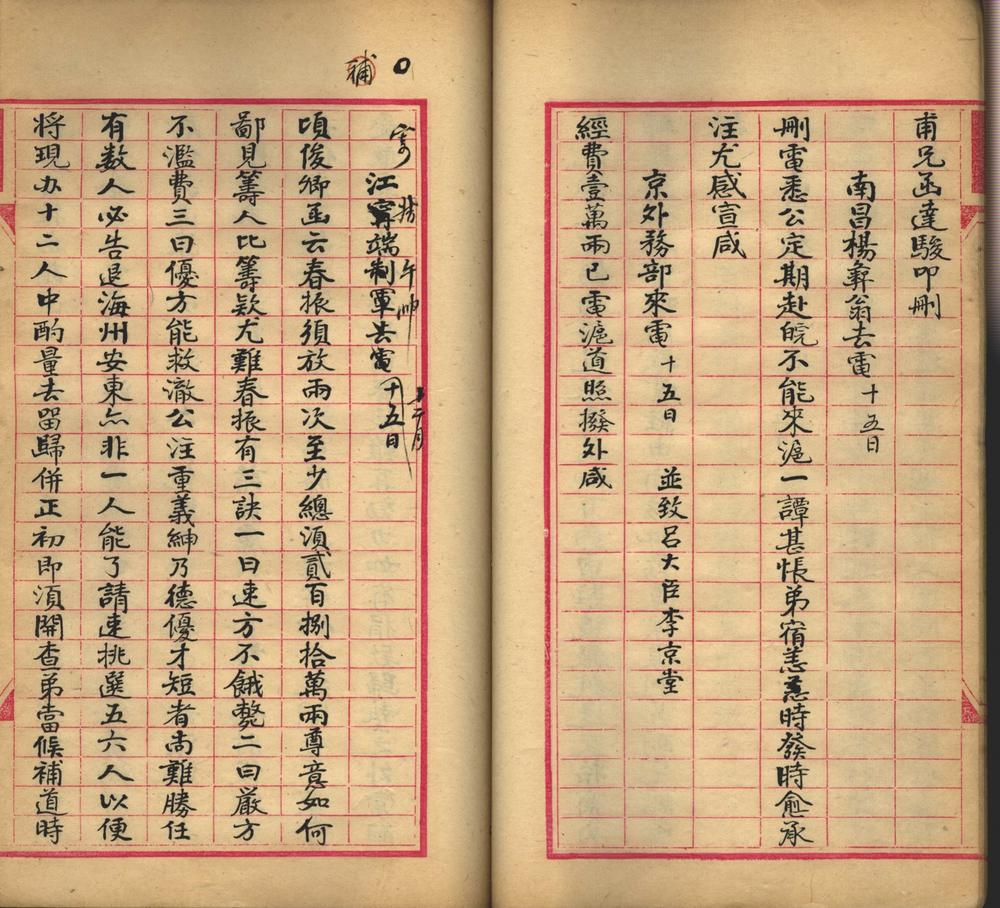 甫兄函達駿叩刪
南昌楊彝翁去電 十五日
刪電悉公定期赴皖不能來滬一譚甚悵弟宿恙時發時愈承
注尤感宣咸
京外務部來電 十五日 並致呂大臣李京堂
經費壹萬兩已電滬道照撥外咸
補
寄江寧端制軍去電 十五日
午帥
十二月
頃俊卿函云春振須放兩次至少總須貳百捌拾萬兩尊意如何
鄙見籌人比籌款尤難春振有三訣一曰速方不餓斃二曰嚴方
不濫費三曰優方能救澈公注重義紳乃德優才短者尚難勝任
有数人必告退海州安東亦非一人能了請速挑選五六人以便
将現办十二人中酌量去留歸併正初即須開查弟當候補道時